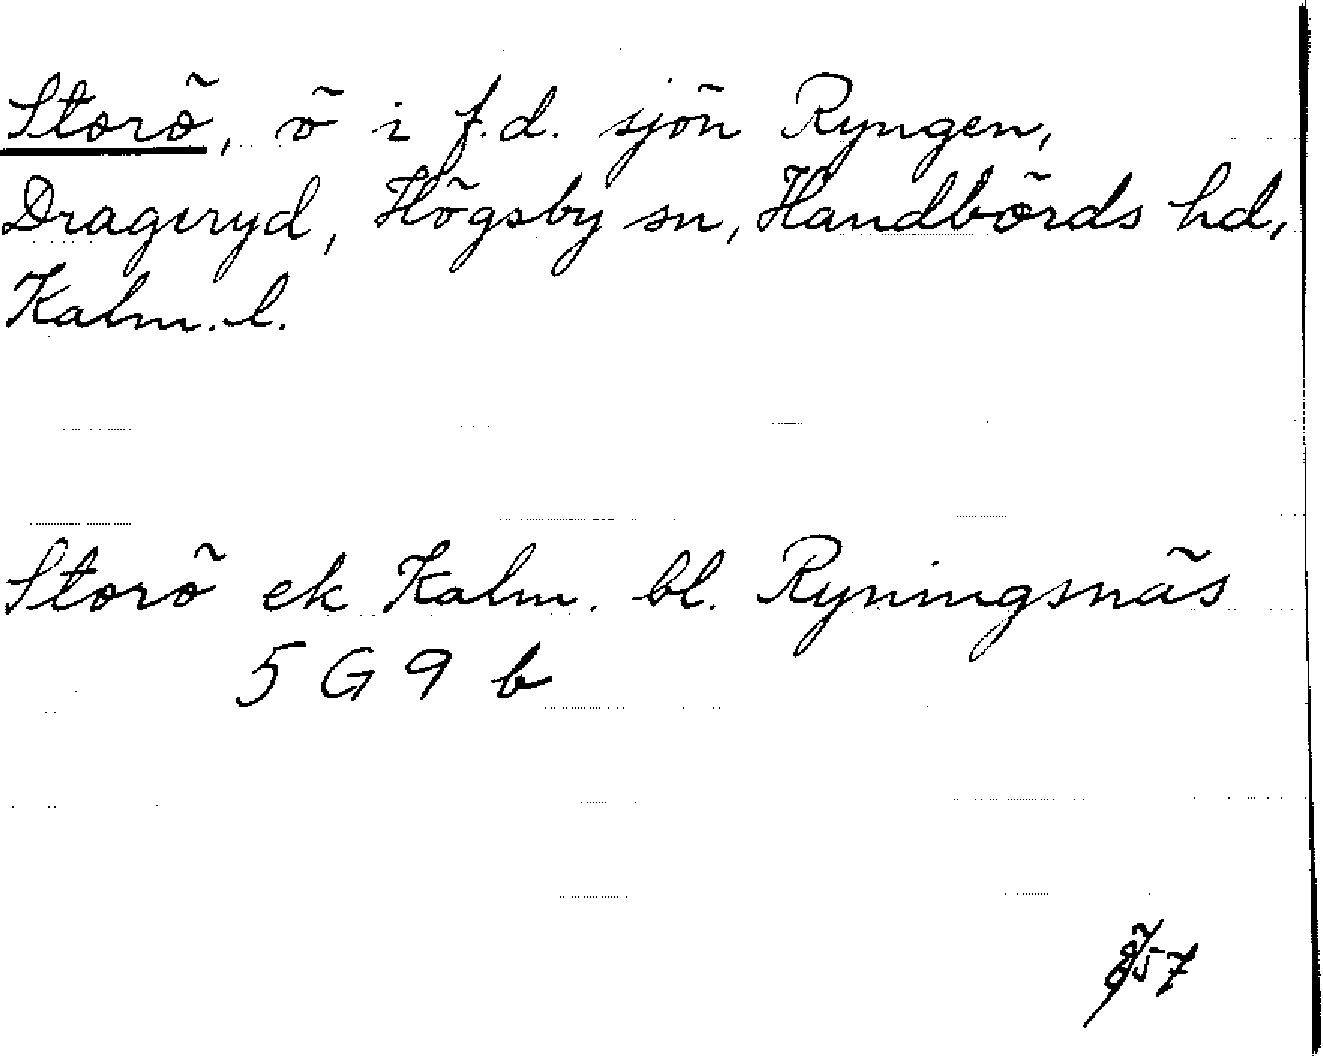 Storö, ö i f.d. sjön Ryngen,
Dragsryd, Högsby sn, Handbörds hd,
Kalm. l.
Storö ek Kalm. bl. Ryningsnäs
5 G 9 b